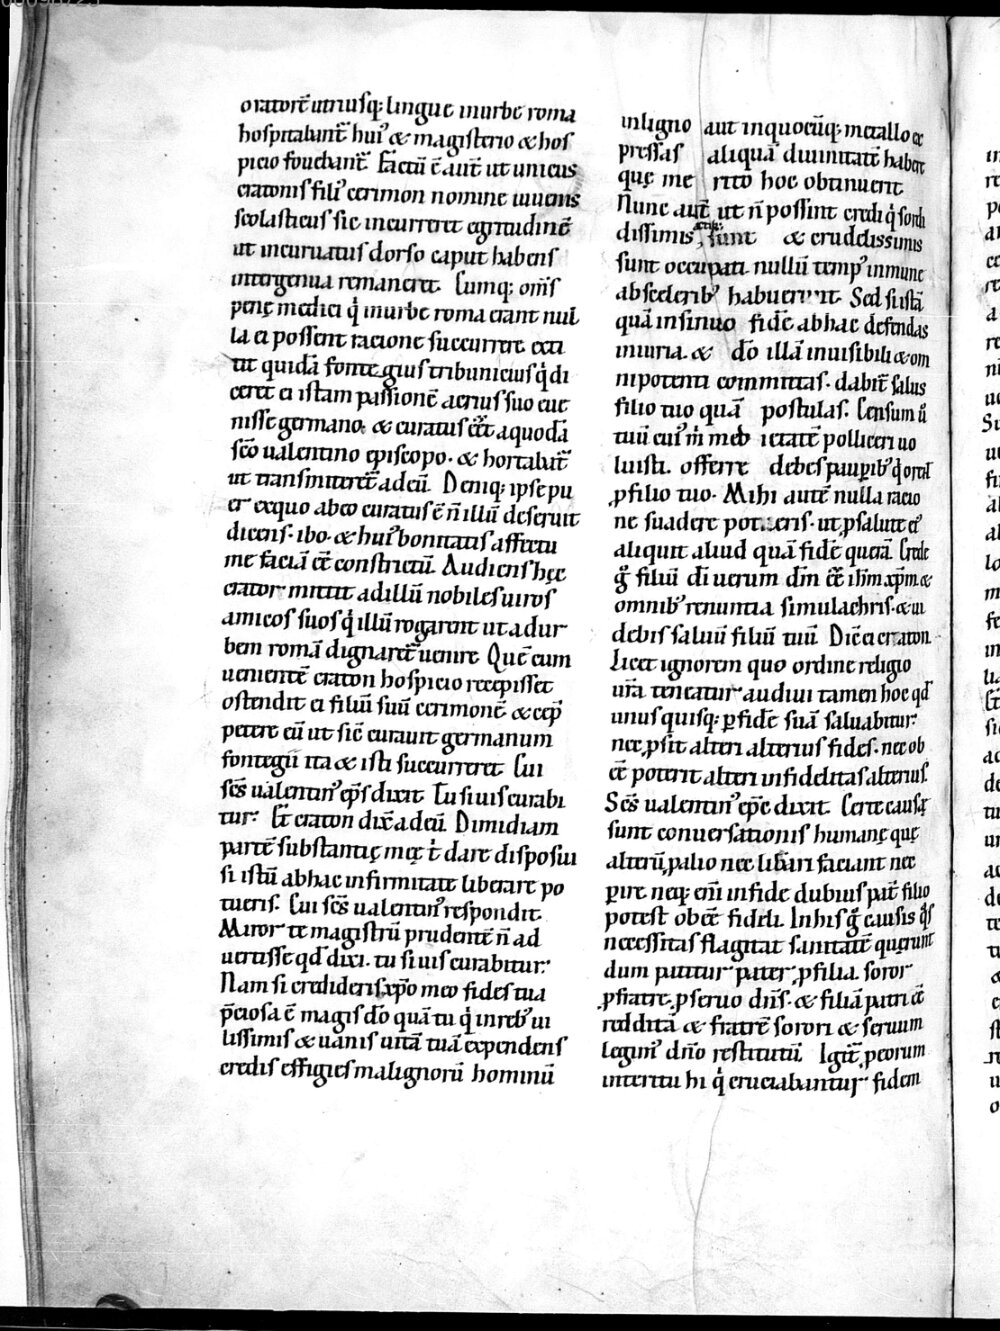 oratorē utriusq; lingue inurbe roma
hospitabant̄ hui' & magisterio & hos
picio fouebant̄. Factū ē aut̄ ut unicus
cratonis fili' cerimon nomine iuuenis
scolasticus sic incurreret egritudinē
ut incuruatus dorso caput habens
intergenua remaneret. Cumq; om̄s
penę medici q̇ inurbe roma erant nul
la ei possent racione succurrere exti
tit quidā fontegius tribunicius q̇ di
ceret ei istam passionē aerius suo eue
nisse germano. & curatus eēt aquodā
sc̄o ualentino episcopo. & hortabat̄
ut transmitteret̄ adeū. Deniq; ipse pu
er exquo abeo curatus ē n̄ illū deseruit
dicens. ibo. & hui' bonitatis affectu
me faciā eē constrictū. Audiens hęc
craton mittit adillū nobiles uiros
amicos suos q̇ illū rogarent ut adur
bem romā dignaret̄ uenire. Quē cum
uenientē craton hospicio recepisset
ostendit ei filiū suū cerimonē & cep̄
petere eū ut sic̄ curauit germanum
fontegii ita & isti succurreret. Cui
sc̄s ualentin' ep̄s dixit. Tu si uis curabi
tur. Et craton dix̄ adeū. Dimidiam
partē substantię męę t̄ dare disposui
si istū abhac infirmitate liberare po
tueris. Cui sc̄s ualentin' respondit.
Miror te magistrū prudentē n̄ ad
uertisse qd̄ dixi. tu si uis curabitur.
Nam si credideris xp̄o meo fides tua
p̄ciosa ē magis dō quā tu q̇ inreb' ui
lissimis & uanis uitā tuā expendens
credis effigies malignorū hominū
inligno aut inquocūq; metallo ex
pressas aliquā diuinitatē habere
quę me rito hoc obtinuerit
Nunc aut̄ ut n̄ possint credi q̇ sordi
dissimis artib; sunt & crudelissimis
sunt occupati nullū temp' inmune
absceler̄ib' habuerunt. Sed si istā
quā insinuo fidē abhac defendas
iniuria. & dō illā inuisibili & om
nipotenti committas. dabit̄ salus
filio tuo quā postulas. Censum ū
tuū cui' m̄ me polliceri uo
luisti. offerre debes paup̄ib' q̇ orent
ꝓfilio tuo. Mihi autē nulla racio
ne suadere poteris. ut ꝓsalute ei'
aliquit aliud quā fidē querā. Crede
g̊ filiū dī uerum dm̄ eē ihm̄ xp̄m. &
omnib' renuntia simulachris. & ui
debis saluū filiū tuū. Dic̄ ei craton.
Licet ignorem quo ordine religio
ur̄a teneatur audiui tamen hoc qd̄
unusquisq; ꝑfidē suā saluabitur.
nec ꝓsit alteri alterius fides. nec ob
eē poterit alteri infidelitas alterius.
Sc̄s ualentin' ep̄c dixit. Certe causę
sunt conuersationis humanę quę
alterū ꝓalio nec libari faciant nec
ꝑire neq; em̄ infide dubius pat̄ filio
potest obeē fideli. Inhis g̊ causis q̄s
necessitas flagitat sanitatē quęrunt
dum patitur pater ꝓfilia. soror
ꝓfratre. ꝓseruo dn̄s. & filiā patri eē
redditā & fratrē sorori & seruum
legim' dn̄o restitutū. Igit̄ ꝓeorum
interitu hi q̇ cruciabantur fidem